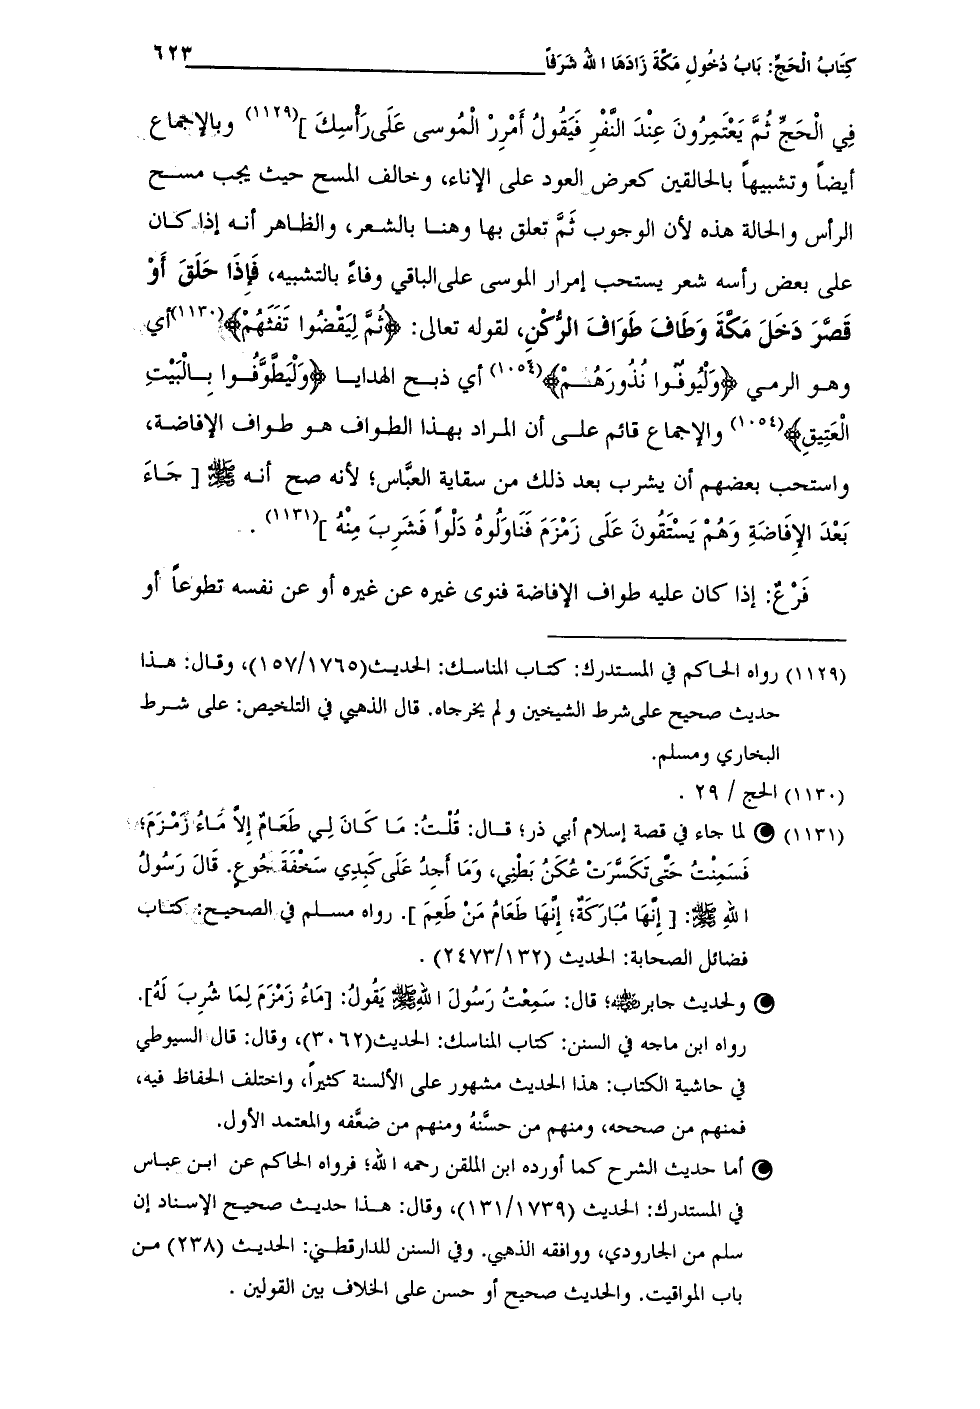 كِتَابُ الْحَجِّ: بَابُ دُخُولِ مَكَّةَ زَادَهَا اللهُ شَرَفاً ٦٢٣
فِي الْحَجِّ ثُمَّ يَعْتَمِرُونَ عِنْدَ النَّفْرِ فَيَقُولُ أَمْرِرْ الْمُوسى عَلَى رَأْسِكَ ](١١٢٩) وبالإجماع
أيضاً وتشبيهاً بالحالقين كعرض العود على الإناء، وخالف المسح حيث يجب مسح
الرأس والحالة هذه لأن الوجوب ثَمَّ تعلق بها وهنا بالشعر، والظاهر أنه إذا كان
على بعض رأسه شعر يستحب إمرار الموسى على الباقي وفاءً بالتشبيه، فَإِذَا حَلَقَ أَوْ
قَصَّرَ دَخَلَ مَكَّةَ وَطَافَ طَوَافَ الرُّكْنِ، لقوله تعالى: ﴿ثُمَّ لِيَقْضُوا تَفَثَهُمْ﴾(١١٣٠) أي
وهو الرمي ﴿وَلْيُوفُوا نُذُورَهُمْ﴾(١٠٥٤) أي ذبح الهدايا ﴿وَلْيَطَّوَّفُوا بِالْبَيْتِ
الْعَتِيقِ﴾(١٠٥٤) والإجماع قائم على أن المراد بهذا الطواف هو طواف الإفاضة،
واستحب بعضهم أن يشرب بعد ذلك من سقاية العبَّاس؛ لأنه صح أنه ﷺ [ جَاءَ
بَعْدَ الإِفَاضَةِ وَهُمْ يَسْتَقُونَ عَلَى زَمْزَمَ فَنَاوَلُوهُ دَلْواً فَشَرِبَ مِنْهُ ](١١٣١) .
فَرْعٌ: إذا كان عليه طواف الإفاضة فنوى غيره عن غيره أو عن نفسه تطوعاً أو
(١١٢٩) رواه الحاكم في المستدرك: كتاب المناسك: الحديث(١٥٧/١٧٦٥)، وقال: هذا
حديث صحيح على شرط الشيخين ولم يخرجاه. قال الذهبي في التلخيص: على شرط
البخاري ومسلم.
(١١٣٠) الحج / ٢٩ .
(١١٣١) لما جاء في قصة إسلام أبي ذر؛ قال: قُلْتُ: مَا كَانَ لِي طَعَامٌ إِلاَّ مَاءُ زَمْزَمَ؛
فَسَمِنْتُ حَتَّى تَكَسَّرَتْ عُكَنُ بَطْنِي، وَمَا أَجِدُ عَلَى كَبِدِي سَخْفَةَ جُوعٍ. قَالَ رَسُولُ
اللهِ ﷺ: [ إِنَّهَا مُبَارَكَةٌ؛ إِنَّهَا طَعَامُ مَنْ طَعِمَ ]. رواه مسلم في الصحيح: كتاب
فضائل الصحابة: الحديث (٢٤٧٣/١٣٢) .
ولحديث جابر ﵁؛ قال: سَمِعْتُ رَسُولَ اللهِ ﷺ يَقُولُ: [مَاءُ زَمْزَمَ لِمَا شُرِبَ لَهُ].
رواه ابن ماجه في السنن: كتاب المناسك: الحديث(٣٠٦٢)، وقال: قال السيوطي
في حاشية الكتاب: هذا الحديث مشهور على الألسنة كثيراً، واختلف الحفاظ فيه،
فمنهم من صححه، ومنهم من حسَّنهُ ومنهم من ضعَّفه والمعتمد الأول.
أما حديث الشرح كما أورده ابن الملقن رحمه الله؛ فرواه الحاكم عن ابن عباس
في المستدرك: الحديث (١٣١/١٧٣٩)، وقال: هذا حديث صحيح الإسناد إن
سلم من الجارودي، ووافقه الذهبي. وفي السنن للدارقطني: الحديث (٢٣٨) من
باب المواقيت. والحديث صحيح أو حسن على الخلاف بين القولين .